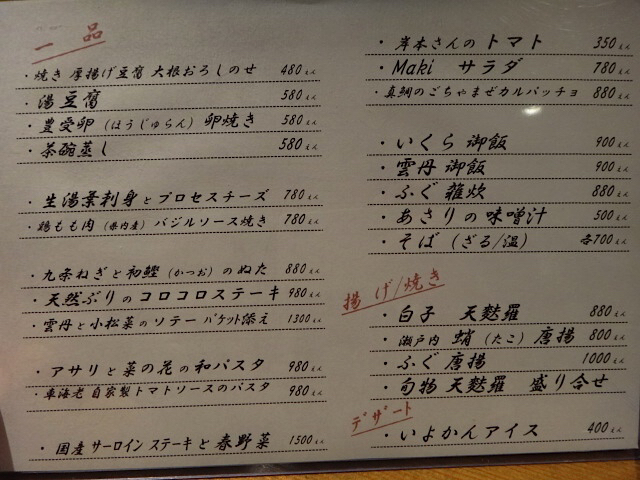 一品
・焼き 厚揚げ豆腐 大根おろしのせ 480えん
・湯豆腐 580えん
・豊受卵（ほうじゅらん）卵焼き 580えん
・茶碗蒸し 580えん
・生湯葉刺身とプロセスチーズ 780えん
・鶏もも肉（県内産）バジルソース焼き 780えん
・九条ねぎと初鰹（かつお）のぬた 880えん
・天然ぶりのコロコロステーキ 980えん
・雲丹と小松菜のソテー バケット添え 1300えん
・アサリと菜の花の和パスタ 980えん
・車海老 自家製トマトソースのパスタ 980えん
・国産サーロインステーキと春野菜 1500えん
・岸本さんのトマト 350えん
・Maki サラダ 780えん
・真鯛のごちゃまぜカルパッチョ 880えん
・いくら御飯 900えん
・雲丹御飯 900えん
・ふぐ 雑炊 880えん
・あさりの味噌汁 500えん
・そば（ざる/温） 各700えん
揚げ/焼き
・白子 天麩羅 880えん
・瀬戸内 蛸（たこ）唐揚 800えん
・ふぐ 唐揚 1000えん
・旬物 天麩羅 盛り合せ
デザート
・いよかんアイス 400えん